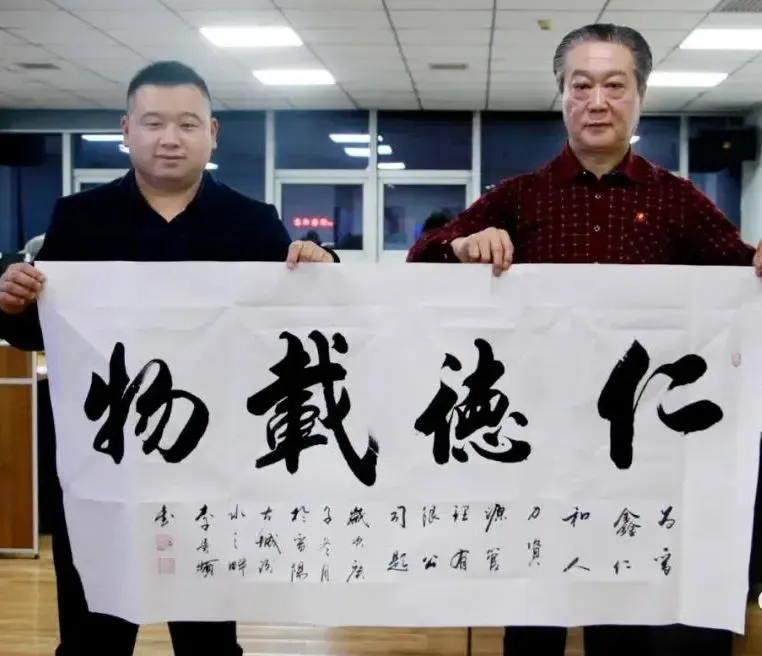 仁德載物
为
鑫仁
和人
力資
源管
理有
限公
司題
歲次庚
子冬月
於
古城
水之畔
李
書